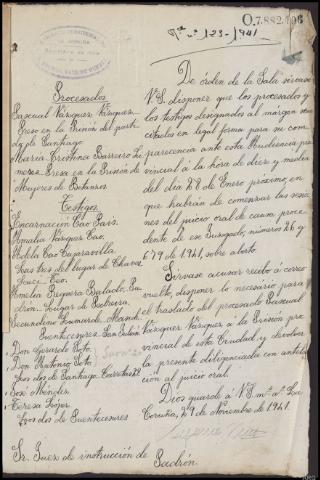 O.7.882.196
nº 123-1941
Procesados
Pascual Vázquez Vázquez
Preso en la Prisión del partido
de Santiago
María Cristina Barreiro
Presa en la Prisión de
Mujeres de Betanzos
Testigos
Encarnación Cao
Amalia Vázquez Cao
Adela Cao
Las tres del lugar de
Teo
Amelia
drón. Lugar de
Secundino
Puentecesures
Don Gerardo Soto
Don Antonio Soto
Los dos de Santiago
José Méndez
Teresa
Los dos de Puentecesures
De órden de la Sala sírvase
V.S. disponer que los procesados y
los testigos designados al margen sean
citados en legal forma para su com
parecencia ante esta Audiencia pro
vincial a la hora de diez y media
del día 28 de Enero próximo, en
que habrán de comenzar las sesio
nes del juicio oral de causa proce
dente de ese Juzgado, números 26 y
679 de 1941, sobre aborto.
Sírvase acusar recibo á correo
vuelto, disponer lo necesario para
el traslado del procesado Pascual
Vázquez Vázquez a la Prisión pro
vincial de esta Ciudad y devolver
la presente diligenciada con antela
ción al juicio oral.
Dios guarde á V.S. mº aº La
Coruña, 29 de Noviembre de 1941.
Sr. Juez de instrucción de Padrón.